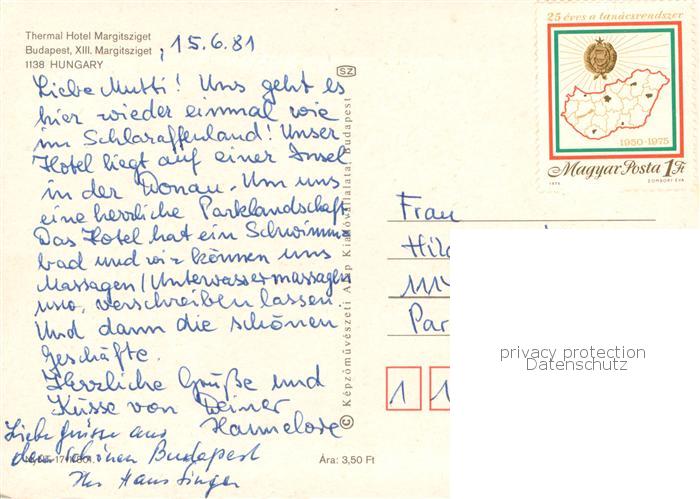 Thermal Hotel Margitsziget
Budapest, XIII. Margitsziget
1138 HUNGARY
, 15.6.81
Liebe Mutti! Uns geht es
hier wieder einmal wie
im Schlaraffenland! Unser
Hotel liegt auf einer Insel
in der Donau. Um uns
eine herrliche Parklandschaft
Das Hotel hat ein Schwimm-
bad und wir können uns
Massagen/Unterwassermassagen
usw. verschreiben lassen.
Und dann die schönen
Geschäfte.
Herzliche Grüße und
Küsse von Deiner
Hannelore
Liebe Grüsse aus
dem schönen Budapest
Ihr Hans Singer
Ára: 3,50 Ft
SZ
© Képzőművészeti Alap Kiadóvállalata, Budapest
25 éves a tanácsrendszer
1950-1975
Magyar Posta 1Ft
1975
ZOMBORY ÉVA
Frau
Hil
111
Par
1 1
privacy protection
Datenschutz